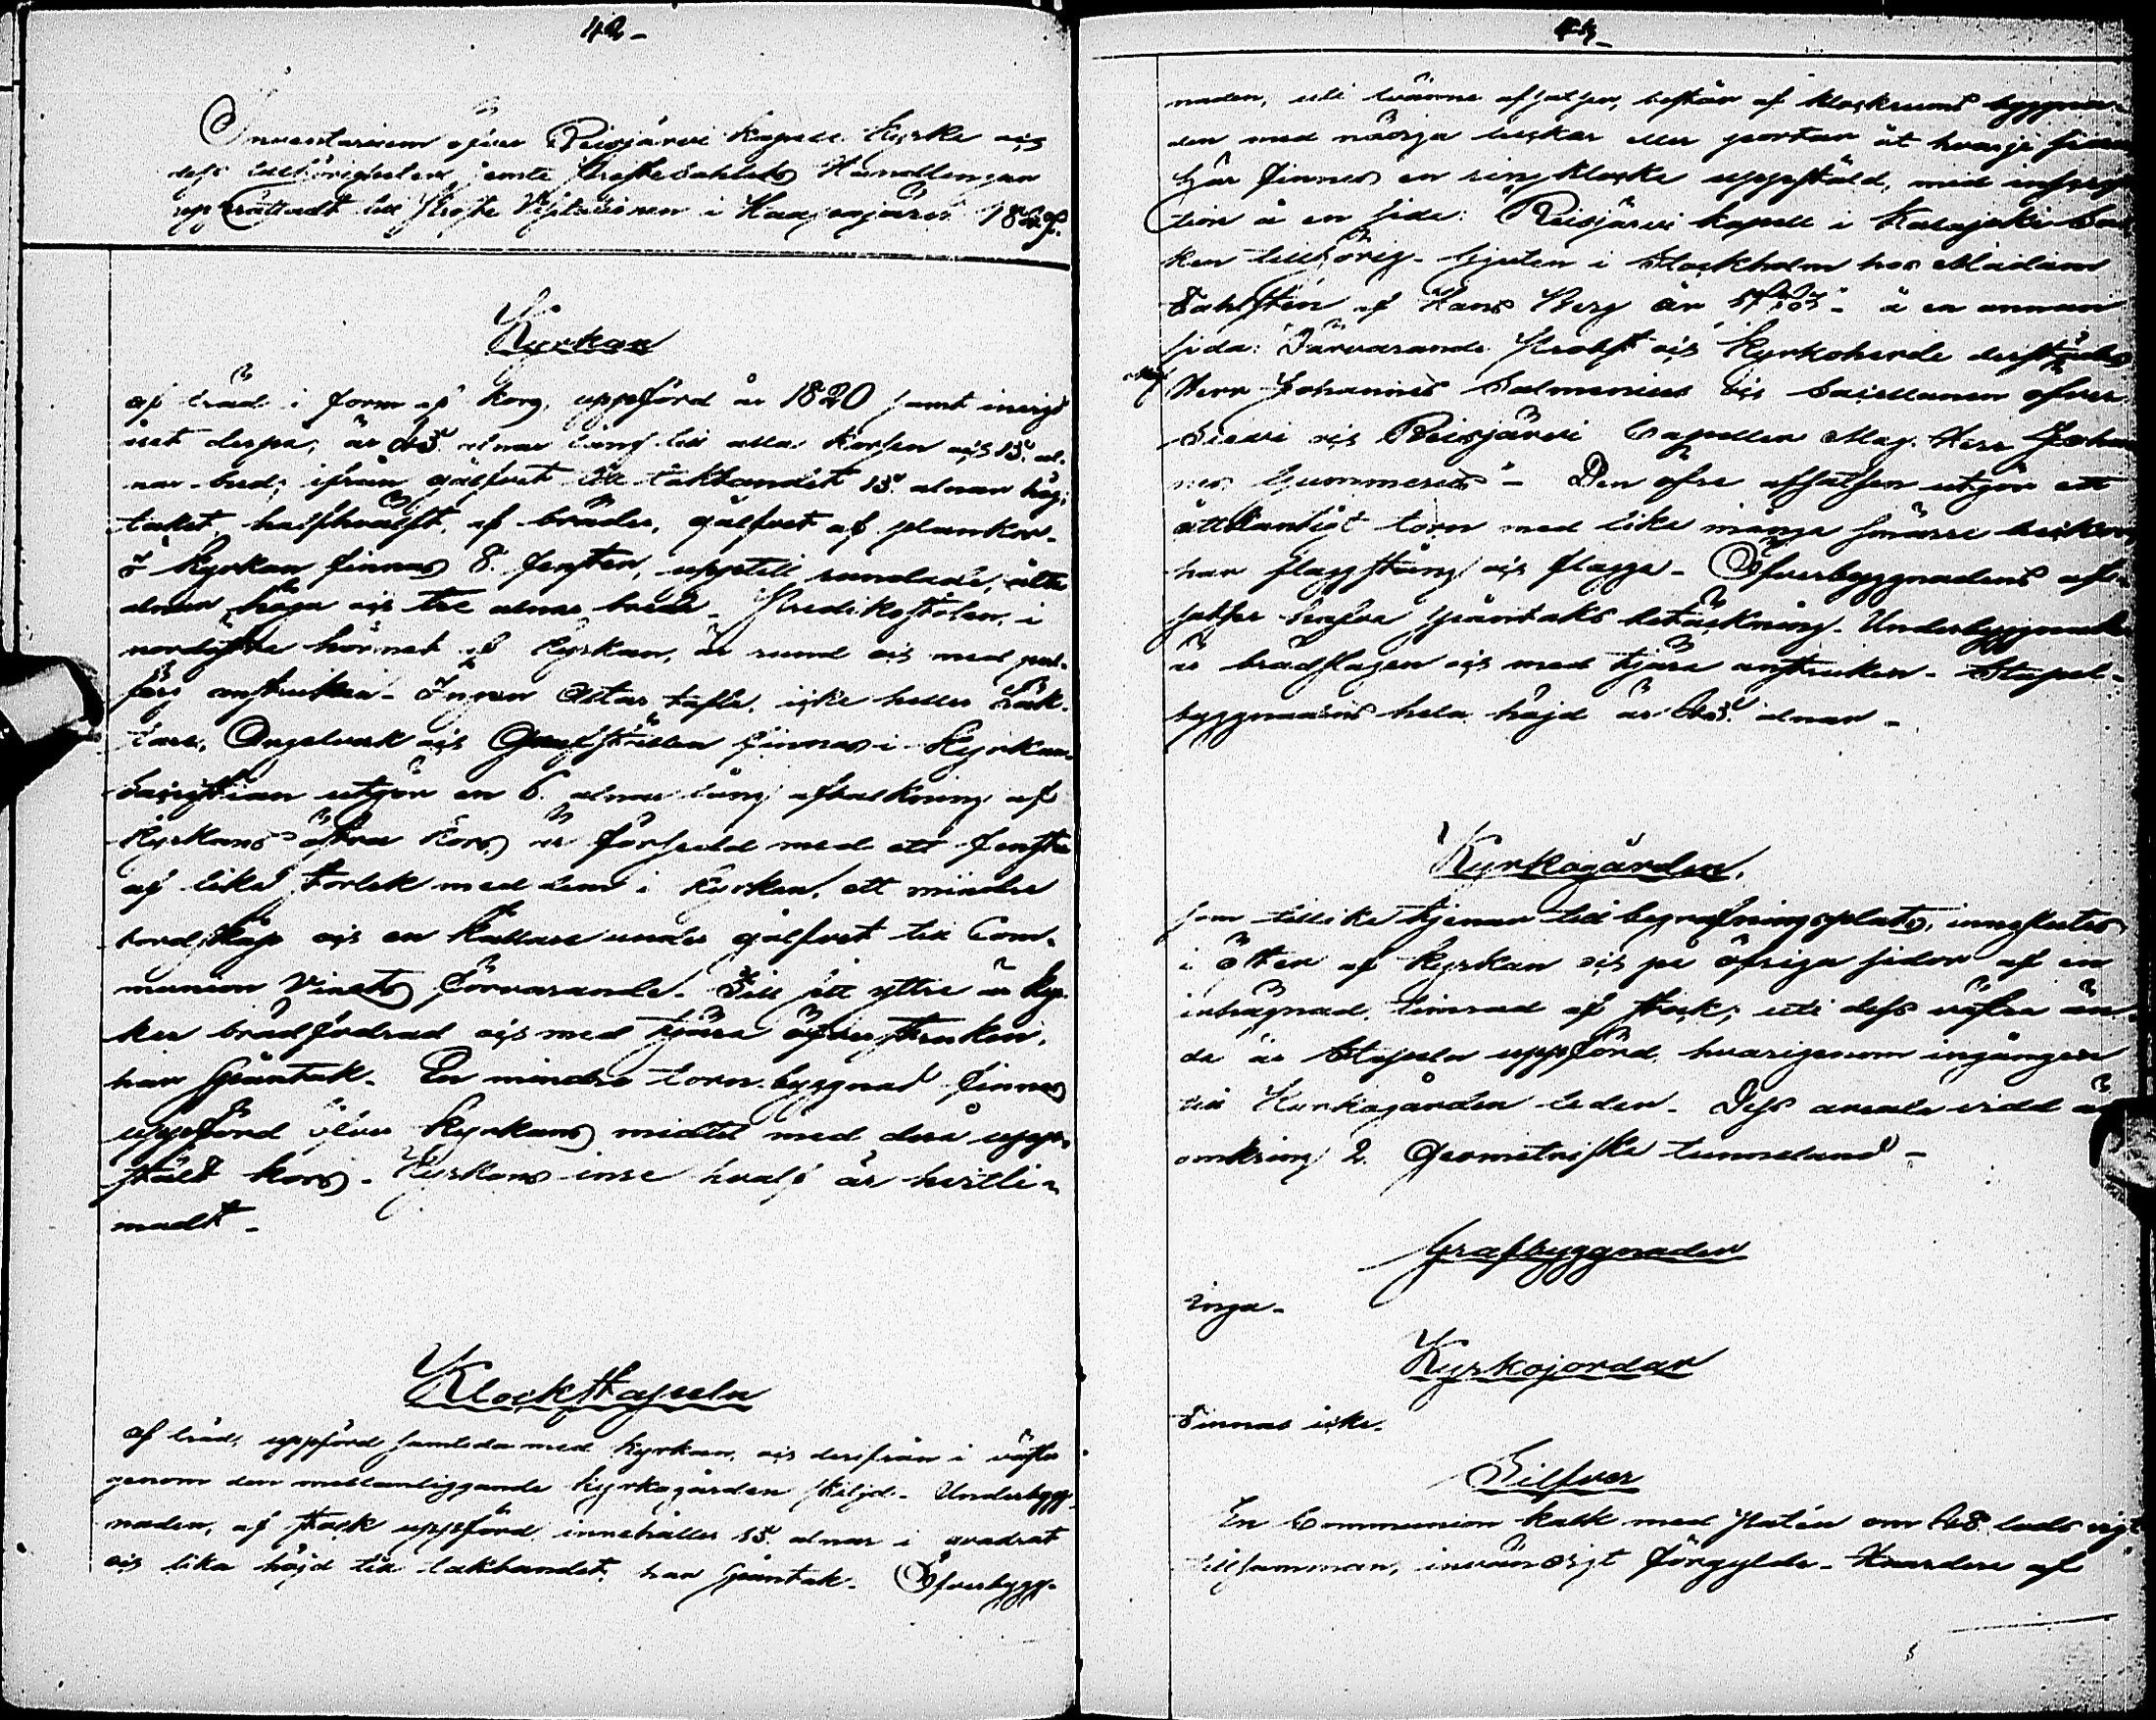 42-
Inventarium öfver Reisjärvi Kapell Kyrka och
dess tillhörigheter jemte Handlingar
upprättadt till Visitationen i Haapajärvi
Kyrkan
af träd i form af kors, uppförd år 1820 samt invigd
året derpå, är alnar lång till alla korsen och 15 al-
nar bred; ifrån gålfvet till takbandet 15 alnar hög;
taket halfhvälft, af bräder, gålfvet af plankor.
I Kyrkan finnas 8. fenster, upptill rundade, åtta
alnar höga och tre alnar breda. Predikstolen, i
nordöstra hörnet af Kyrkan, är rund och med perl-
färg anstruken. Ingen Altar tafla, icke heller Läk-
tare, Orgelverk och finnas i Kyrkan.
Sacristian utgör en 6. alnar lång afbalkning af
Kyrkans östra kors, är försedd med ett fenster
af lika storlek med dem i Kyrkan, ett mindre
bord, skåp och en källare under gålfvet till Com-
munion Vinets förvarande. Till sitt yttre är Kyr-
kan brädfodrad och med tjära öfverstruken,
har spåntak. En mindre torn byggnad finnes
uppförd öfver Kyrkans midt med derå upp-
stäldt kors. Kyrkans inre hvalf är hvitli-
madt -
Klockstapeln
af träd, uppförd samtida med Kyrkan, och derifrån i väster
genom den mellanliggande Kyrkogården skiljd. Underbygg-
naden, af stock uppförd innehåller 15. alnar i qvadrat
och lika höjd till takbandet, har spåntak. Öfverbygg-
43-
naden, uti tvänne afsatser, består af klockrums byggna-
den med luckor eller portar åt hvarje sida
här finnes en ringklocka uppstäld, med inscrip-
tion å en sida: Reisjärvi kapell i Kalajoki Soc-
ken tillhörig. Gjuten i Stockholm hos Madam
Fahlsten af Hans Berg år - å en annan
sida: Därvarande Probst och Kyrkoherde derstädes
Herr Johannes Salmenius och Sacellanen öfver
Sievi och Reisjärvi Capeller Mag. Herr Johan-
nes Gummerus - Den öfre afsatsen utgör ett
åttkantigt torn med lika många smärre luckor,
har flaggstång och flagga. Öfverbyggnadens af-
satser hafva spåntaks betäckning. Underbyggnaden
är brädslagen och med tjära anstruken. Stapel-
byggnadens hela höjd är alnar -
Kyrkogården,
som tillika tjenar till begrafningsplats, inneslutes
i öster af Kyrkan och på öfriga sidor af en
inhägnad, timrad af stock; uti dess västra än-
da är Stapeln uppförd, hvarigenom ingången
till Kyrkogården leder. Dess areala vidd är
omkring 2. Geometriska tunneland -
Grafbyggnader
Inga -
Kyrkojordar
Finnas icke.
Silfver
En Communion kalk med patén om 48 lods vigt
tillsamman, invändigt förgylda. af